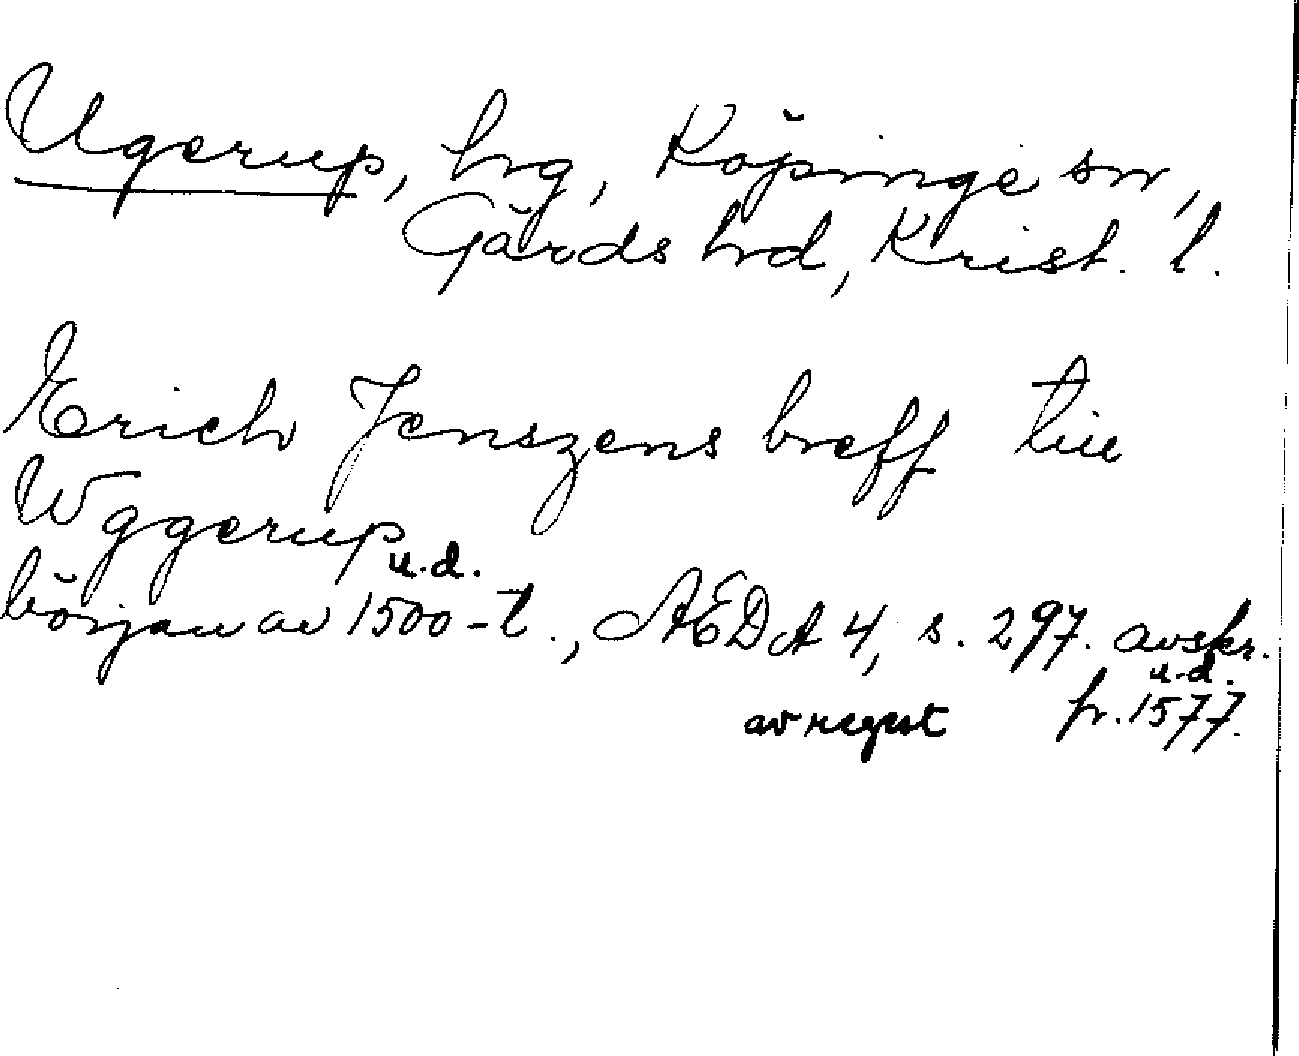 Ugerup, hg, Köpinge sn,
Gärds hd, Krist. l.
Erich Jenszens breff tiil
Wggerup
u.d.
början av 1500-t., ÆDA 4, s. 297. avskr.
u.d.
av regest fr. 1577.